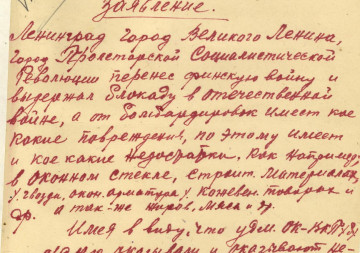 Заявление.
Ленинград город Великого Ленина,
город Пролеторской Социалистической
Революции перенес финскую войну и
выдержал блокаду в отечественной
войне, а от бомбардировок имеет кое
какие повреждения, по этому имеет
и кое какие недостатки, как например
в оконном стекле, строит. материалах,
гвозди, окон. арматура, кожевен. товарах и
др. а так-же жиров, мяса и др.
Имея в виду, что удм. ОК-ВКП/б/
оказывали и оказывают не-